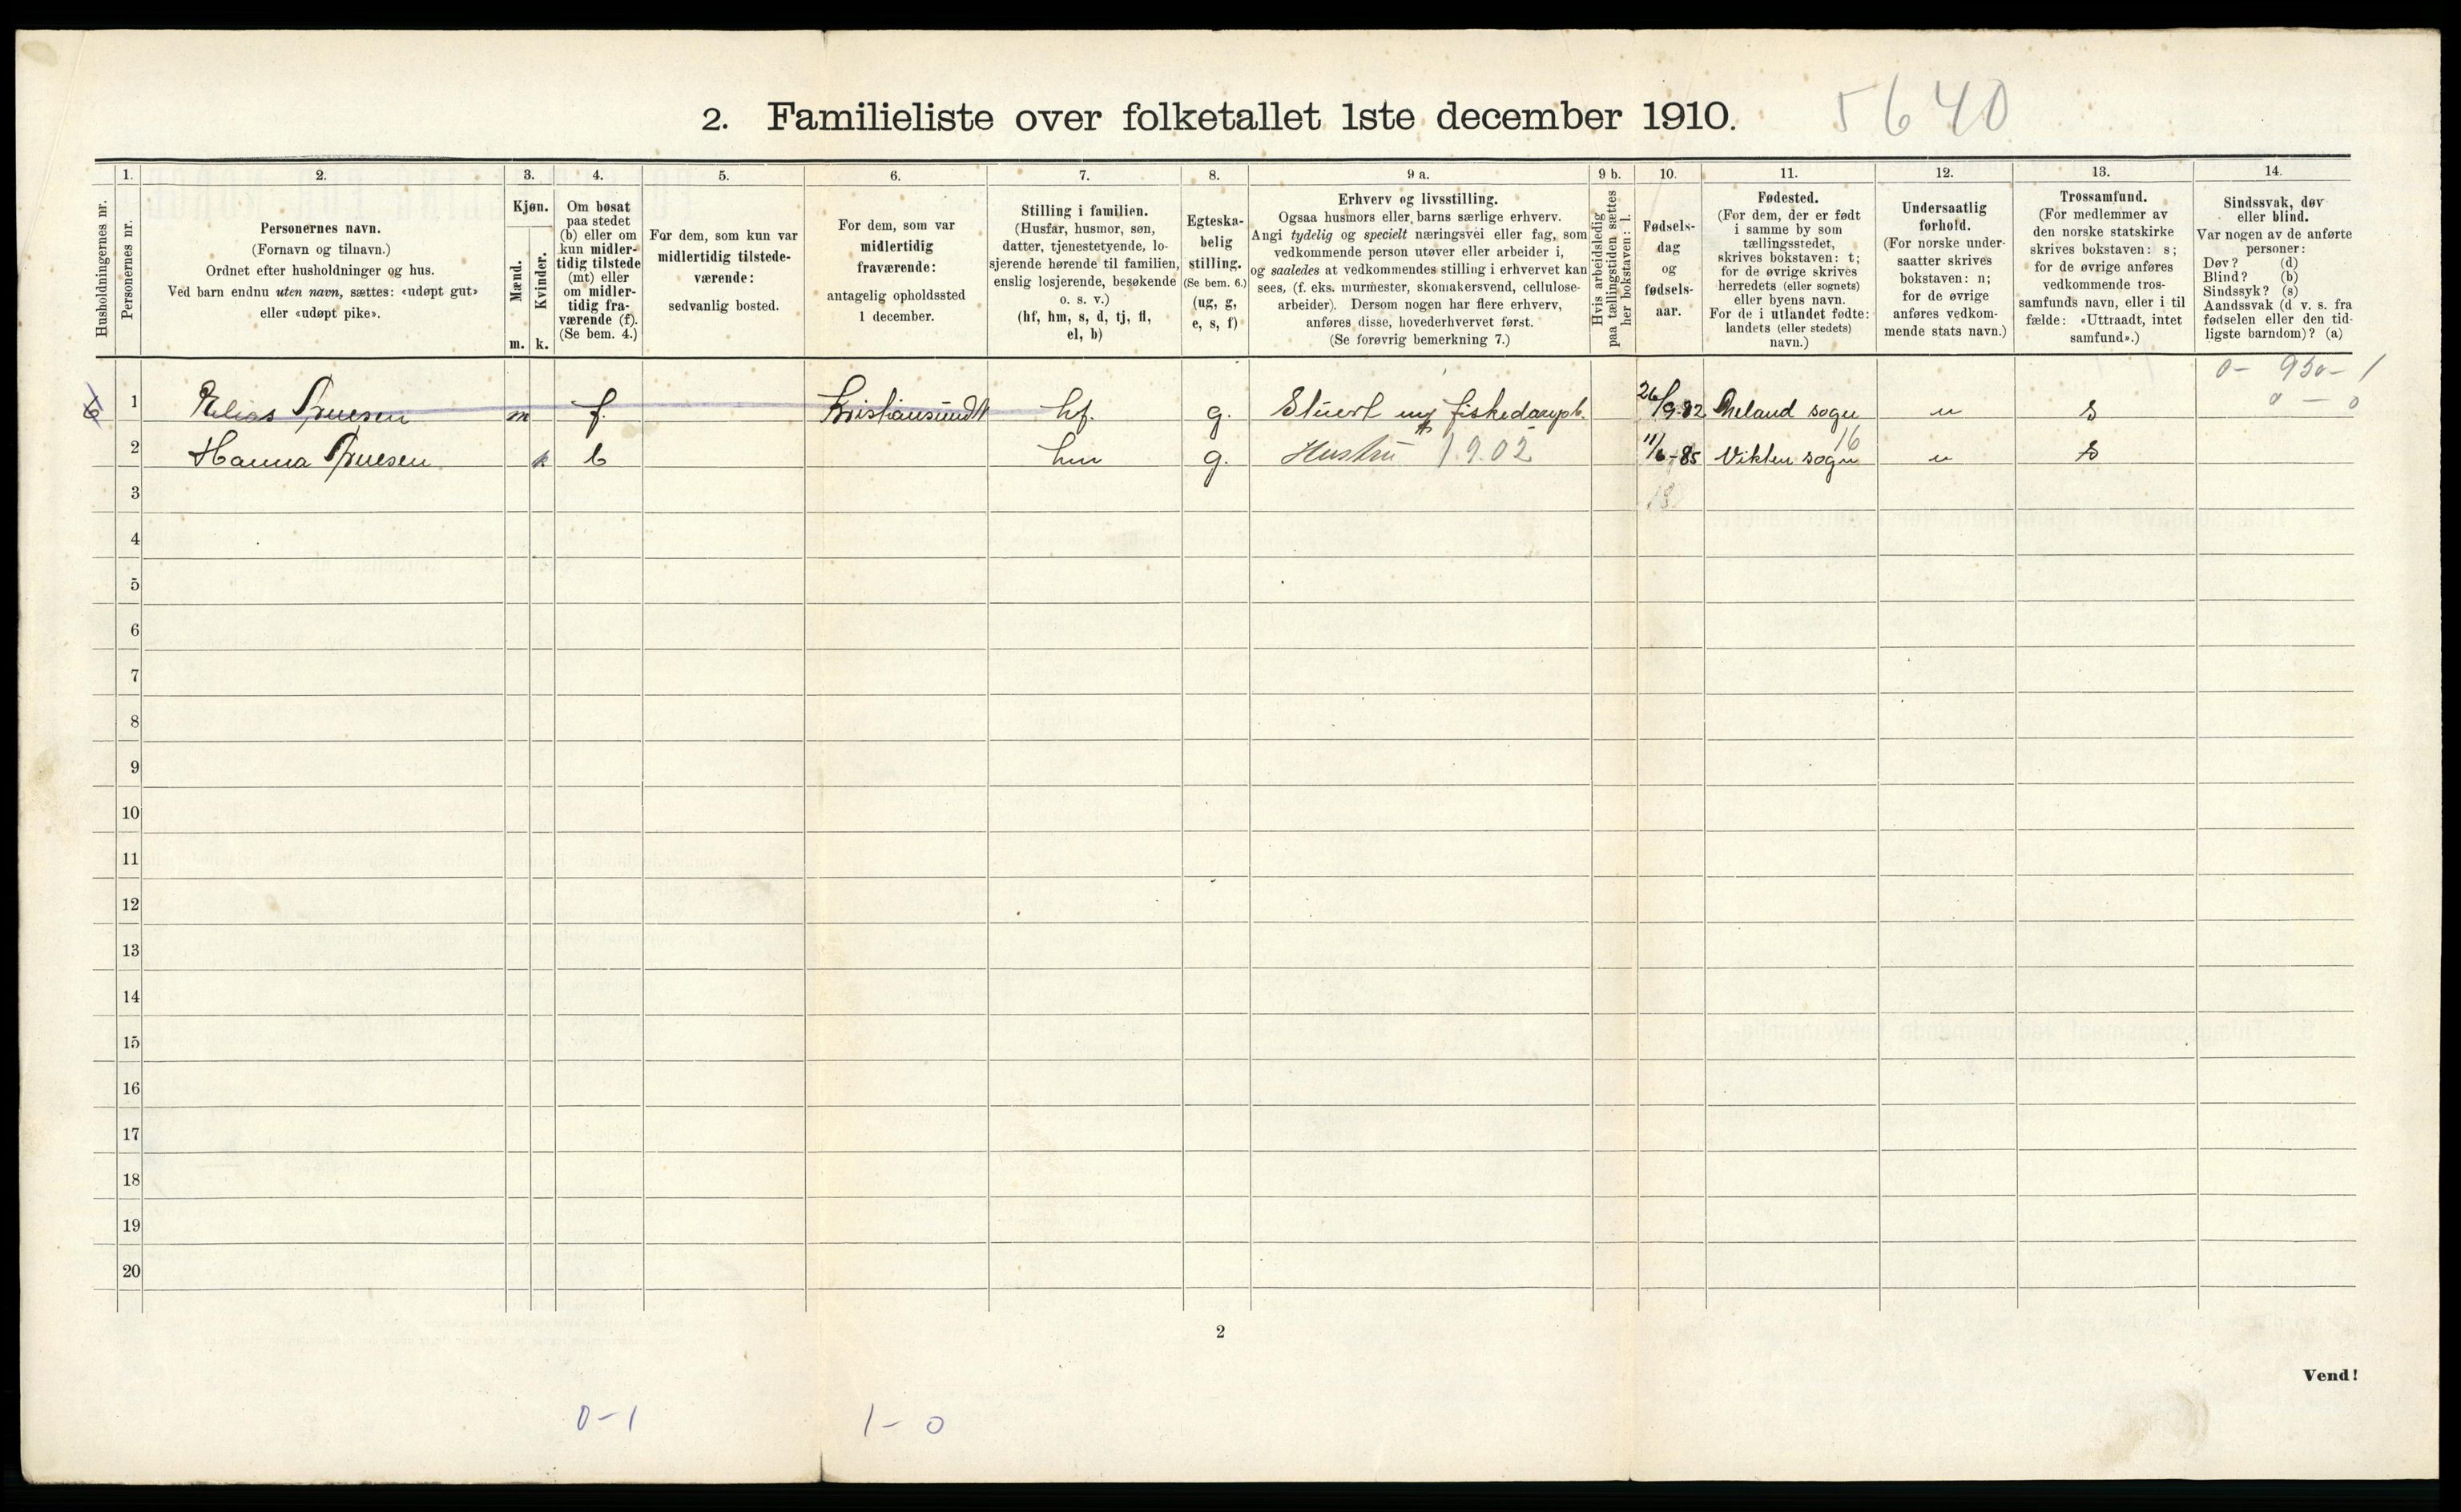 2. Familieliste over folketallet 1ste december 1910. 5640
1. 2. 3. 4. 5. 6. 7. 8. 9 a. 9 b. 10. 11. 12. 13. 14.
Husholdningernes nr.
Personernes nr.
Personernes navn.
(Fornavn og tilnavn.)
Ordnet efter husholdninger og hus.
Ved barn endnu uten navn, sættes: «udøpt gut»
eller «udøpt pike».
Kjøn.
Mænd.
Kvinder.
m. k.
Om bosat
paa stedet
(b) eller om
kun midler-
tidig tilstede
(mt) eller
om midler-
tidig fra-
værende (f).
(Se bem. 4.)
For dem, som kun var
midlertidig tilstede-
værende:
sedvanlig bosted.
For dem, som var
midlertidig
fraværende:
antagelig opholdssted
1 december.
Stilling i familien.
(Husfar, husmor, søn,
datter, tjenestetyende, lo-
sjerende hørende til familien,
enslig losjerende, besøkende
o. s. v.)
(hf, hm, s, d, tj, fl,
el, b)
Egteska-
belig
stilling.
(Se bem. 6.)
(ug, g,
e, s, f)
Erhverv og livsstilling.
Ogsaa husmors eller barns særlige erhverv.
Angi tydelig og specielt næringsvei eller fag, som
vedkommende person utøver eller arbeider i,
og saaledes at vedkommendes stilling i erhvervet kan
sees, (f. eks. murmester, skomakersvend, cellulose-
arbeider). Dersom nogen har flere erhverv,
anføres disse, hovederhvervet først.
(Se forøvrig bemerkning 7.)
Hvis arbeidsledig
paa tællingstiden sættes
her bokstaven: l.
Fødsels-
dag
og
fødsels-
aar.
Fødested.
(For dem, der er født
i samme by som
tællingsstedet,
skrives bokstaven: t;
for de øvrige skrives
herredets (eller sognets)
eller byens navn.
For de i utlandet fødte:
landets (eller stedets)
navn.)
Undersaatlig
forhold.
(For norske under-
saatter skrives
bokstaven: n;
for de øvrige
anføres vedkom-
mende stats navn.)
Trossamfund.
(For medlemmer av
den norske statskirke
skrives bokstaven: s;
for de øvrige anføres
vedkommende tros-
samfunds navn, eller i til
fælde: «Uttraadt, intet
samfund».)
Sindssvak, døv
eller blind.
Var nogen av de anførte
personer:
Døv? (d)
Blind? (b)
Sindssyk? (s)
Aandssvak (d v. s. fra
fødselen eller den tid-
ligste barndom)? (a)
0 - 930 - 1
0 - 0
1 Elias m f. Kristiansund N hf. g. Stuert fiskedampsk. 26/9-82 sogn n s
2 Hanna k b hm g. Hustru 1902 11/6-85 Vikten sogn 16 n s
3
4
5
6
7
8
9
10
11
12
13
14
15
16
17
18
19
20
2
Vend!
0-1 1-0